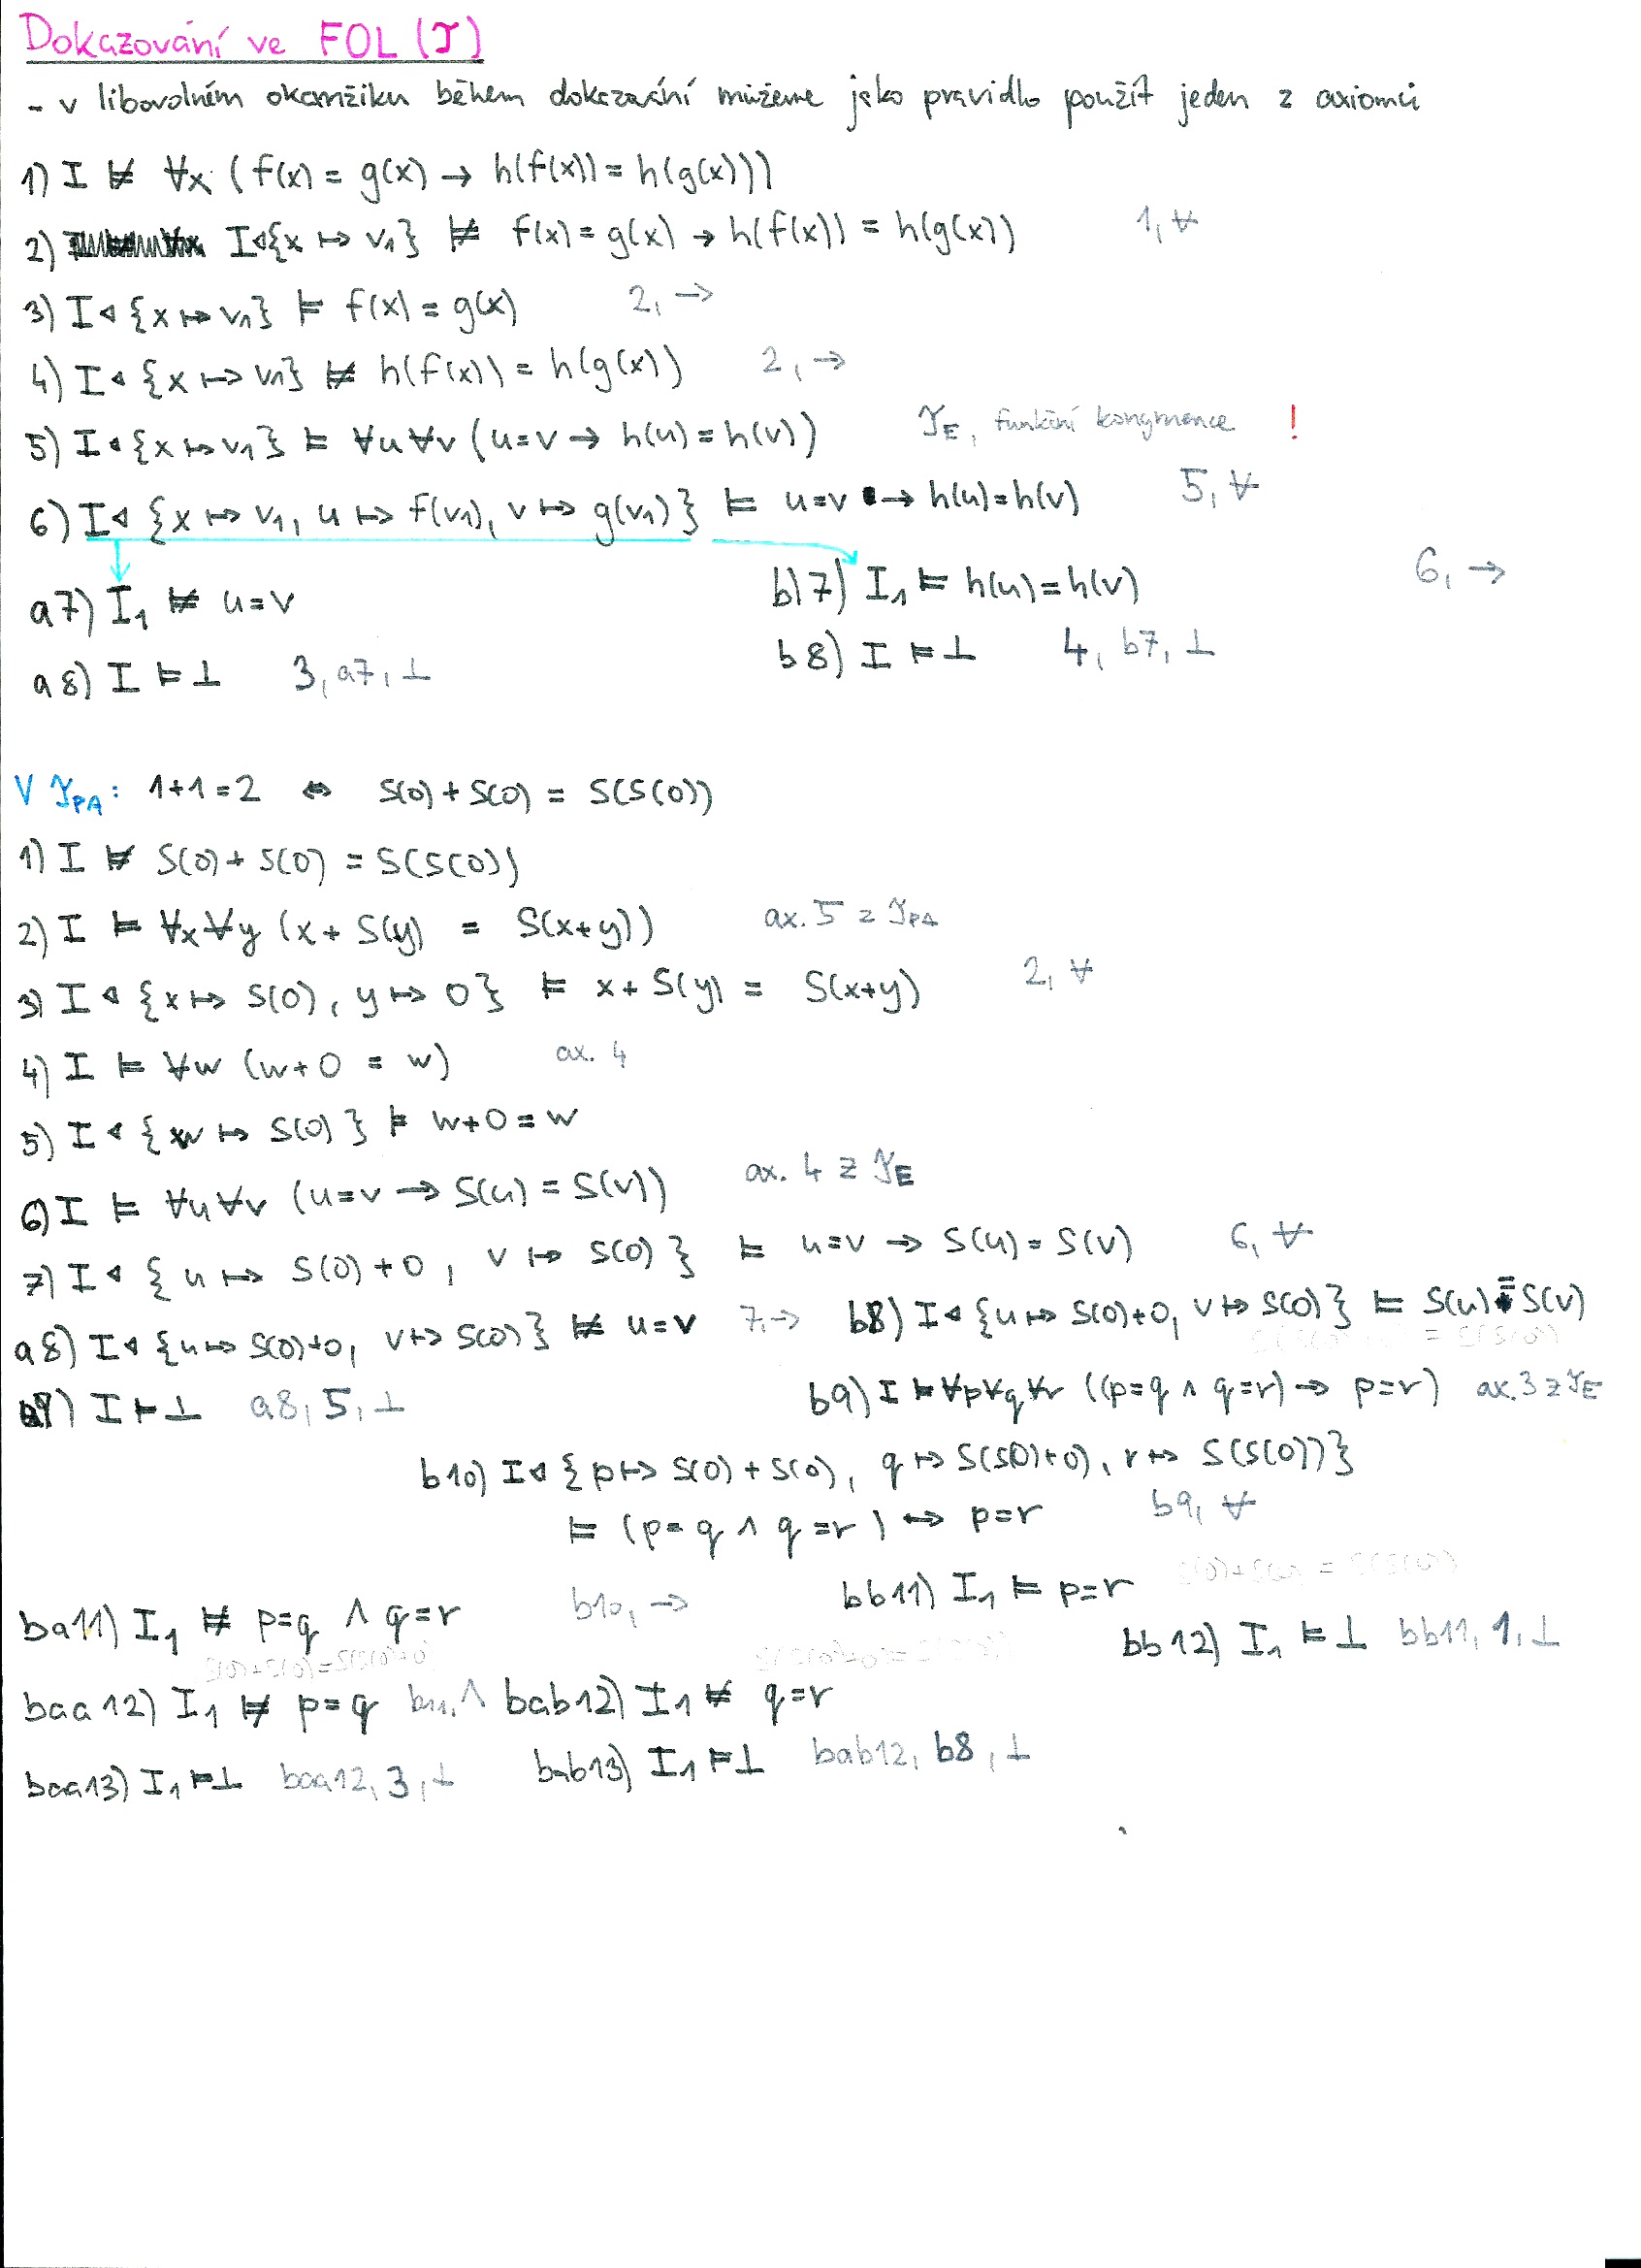 Dokazování ve FOL (T)
- v libovolném okamžiku během dokazování můžeme jako pravidlo použít jeden z axiomů
1) I ⊭ ∀x (f(x) = g(x) → h(f(x)) = h(g(x)))
2) I◁{x ↦ v₁} ⊭ f(x) = g(x) → h(f(x)) = h(g(x)) 1, ∀
3) I◁{x ↦ v₁} ⊨ f(x) = g(x) 2, →
4) I◁{x ↦ v₁} ⊭ h(f(x)) = h(g(x)) 2, →
5) I◁{x ↦ v₁} ⊨ ∀u∀v (u=v → h(u) = h(v)) T_E, funkční kongruence !
6) I◁{x ↦ v₁, u ↦ f(v₁), v ↦ g(v₁)} ⊨ u=v → h(u)=h(v) 5, ∀
a7) I₁ ⊭ u=v b)7) I₁ ⊨ h(u)=h(v) 6, →
a8) I ⊨ ⊥ 3, a7, ⊥ b8) I ⊨ ⊥ 4, b7, ⊥
V T_PA: 1+1=2 ⇔ S(0)+S(0) = S(S(0))
1) I ⊭ S(0)+S(0) = S(S(0))
2) I ⊨ ∀x∀y (x+S(y) = S(x+y)) ax. 5 z T_PA
3) I◁{x ↦ S(0), y ↦ 0} ⊨ x+S(y) = S(x+y) 2, ∀
4) I ⊨ ∀w (w+0 = w) ax. 4
5) I◁{w ↦ S(0)} ⊨ w+0=w
6) I ⊨ ∀u∀v (u=v → S(u) = S(v)) ax. 4 z T_E
7) I◁{u ↦ S(0)+0, v ↦ S(0)} ⊨ u=v → S(u) = S(v) 6, ∀
a8) I◁{u ↦ S(0)+0, v ↦ S(0)} ⊭ u=v 7, → b8) I◁{u ↦ S(0)+0, v ↦ S(0)} ⊨ S(u) = S(v)
a9) I ⊨ ⊥ a8, 5, ⊥ b9) I ⊨ ∀p∀q∀r ((p=q ∧ q=r) → p=r) ax. 3 z T_E
b10) I◁{p ↦ S(0)+S(0), q ↦ S(S(0)+0), r ↦ S(S(0))}
⊨ (p=q ∧ q=r) → p=r b9, ∀
S(0)+S(0) = S(S(0))
ba11) I₁ ⊭ p=q ∧ q=r b10, → bb11) I₁ ⊨ p=r
S(0)+S(0)=S(S(0)+0) bb12) I₁ ⊨ ⊥ bb11, 1, ⊥
baa12) I₁ ⊭ p=q b11, ∧ bab12) I₁ ⊭ q=r
baa13) I₁ ⊨ ⊥ baa12, 3, ⊥ bab13) I₁ ⊨ ⊥ bab12, b8, ⊥